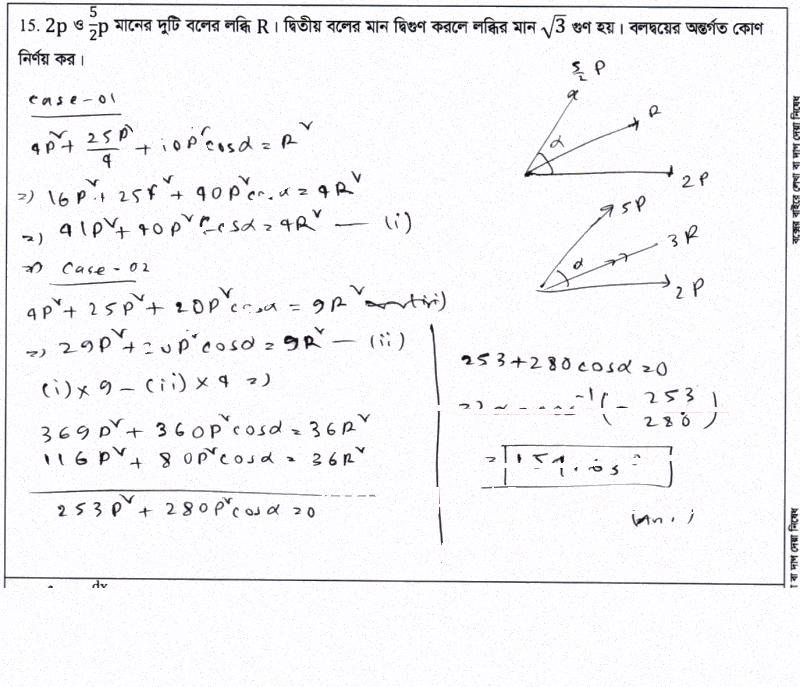 15. 2p ও 5/2 p মানের দুটি বলের লব্ধি R । দ্বিতীয় বলের মান দ্বিগুণ করলে লব্ধির মান √3 গুণ হয় । বলদ্বয়ের অন্তর্গত কোণ
নির্ণয় কর ।
case-01
4p² + 25p²/4 + 10p² cosα = R²
=> 16p² + 25p² + 40p² cosα = 4R²
=> 41p² + 40p² cosα = 4R² — (i)
=> Case-02
4p² + 25p² + 20p² cosα = 9R²
=> 29p² + 20p² cosα = 9R² — (ii)
(i)×9 – (ii)×4 =>
369p² + 360p² cosα = 36R²
116p² + 80p² cosα = 36R²
253p² + 280p² cosα = 0
5/2 P
α
R
2P
5P
3R
α
2P
253 + 280 cosα = 0
=> α = cos⁻¹(– 253/280)
(Ans.)
dx
বক্সের বাইরে লেখা বা দাগ দেয়া নিষেধ
া বা দাগ দেয়া নিষেধ